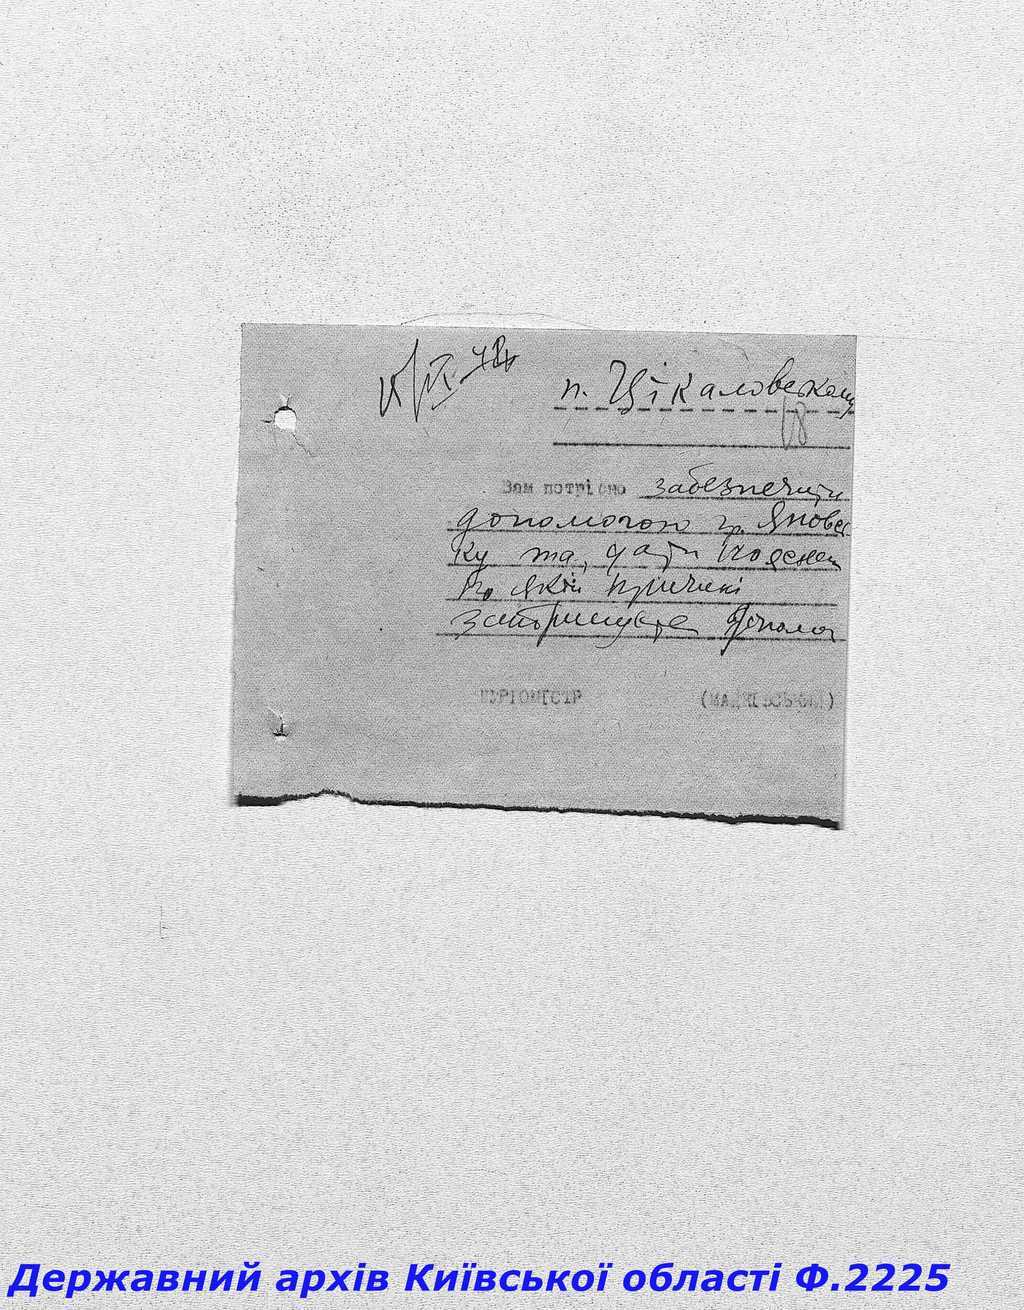 п. Цікаловському
Вам потрібно забезпечити
допомогою гр. Яновсь
ку та, дати пояснен
по якій причині
затримується допомог
БУРГОМІСТР
Державний архів Київської області Ф.2225